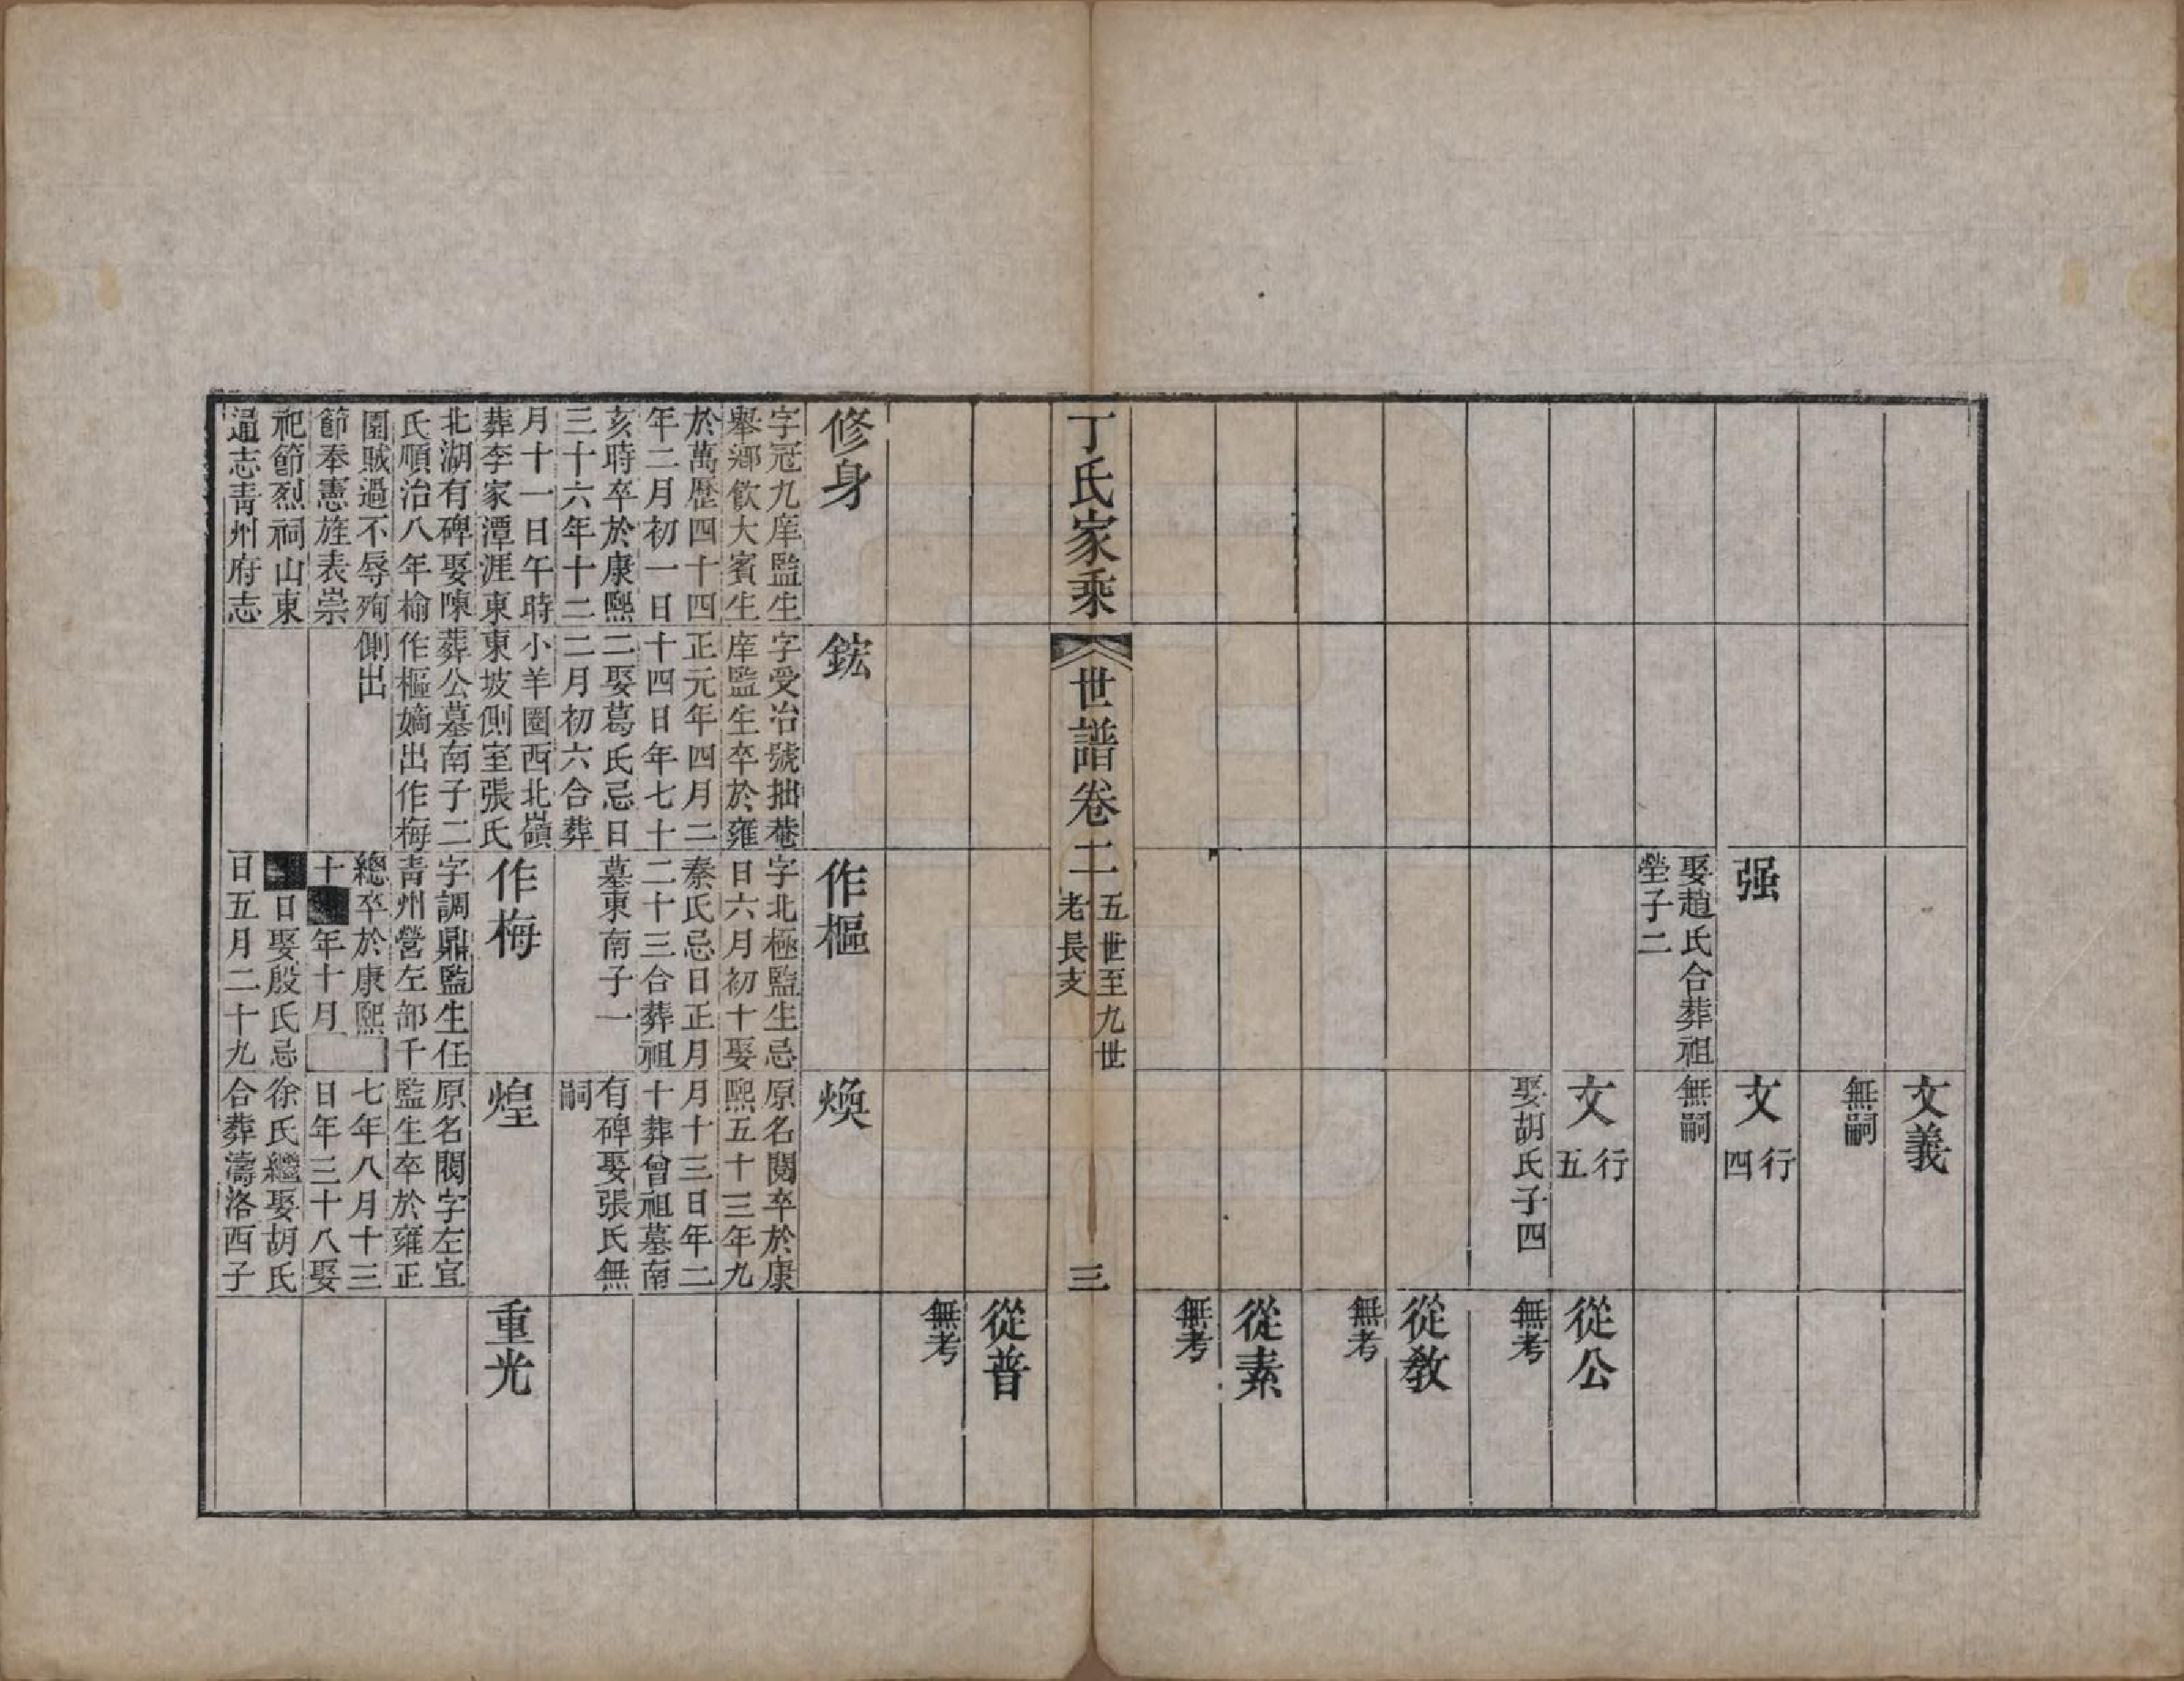 文義
無嗣
强
娶趙氏合葬祖
塋子二
文 行四
無嗣
文 行五
娶胡氏子四
從公
無考
從教
無考
從素
無考
丁氏家乘
世譜卷二
五世至九世
老長支
三
從普
無考
修身
字冠九庠監生
舉鄉飲大賓生
於萬歷四十四
年二月初一日
亥時卒於康熙
三十六年十二
月十一日午時
葬李家潭涯東
北湖有碑娶陳
氏順治八年榆
園賊過不辱殉
節奉憲旌表崇
祀節烈祠山東
通志青州府志
鋐
字受冶號抽菴
庠監生卒於雍
正元年四月二
十四日年七十
二娶葛氏忌日
二月初六合葬
小羊圈西北嶺
東坡側室張氏
葬公墓南子二
作樞嫡出作梅
側出
作樞
字北極監生忌
日六月初十娶
秦氏忌日正月
二十三合葬祖
墓東南子一
煥
原名閱卒於康
熙五十三年九
月十三日年二
十葬曾祖墓南
有碑娶張氏無
嗣
作梅
字調鼎監生任
青州營左部千
總卒於康熙
十年十月
日娶殷氏忌
日五月二十九
煌
原名閣字左宜
監生卒於雍正
七年八月十三
日年三十八娶
徐氏繼娶胡氏
合葬濤洛西子
重光